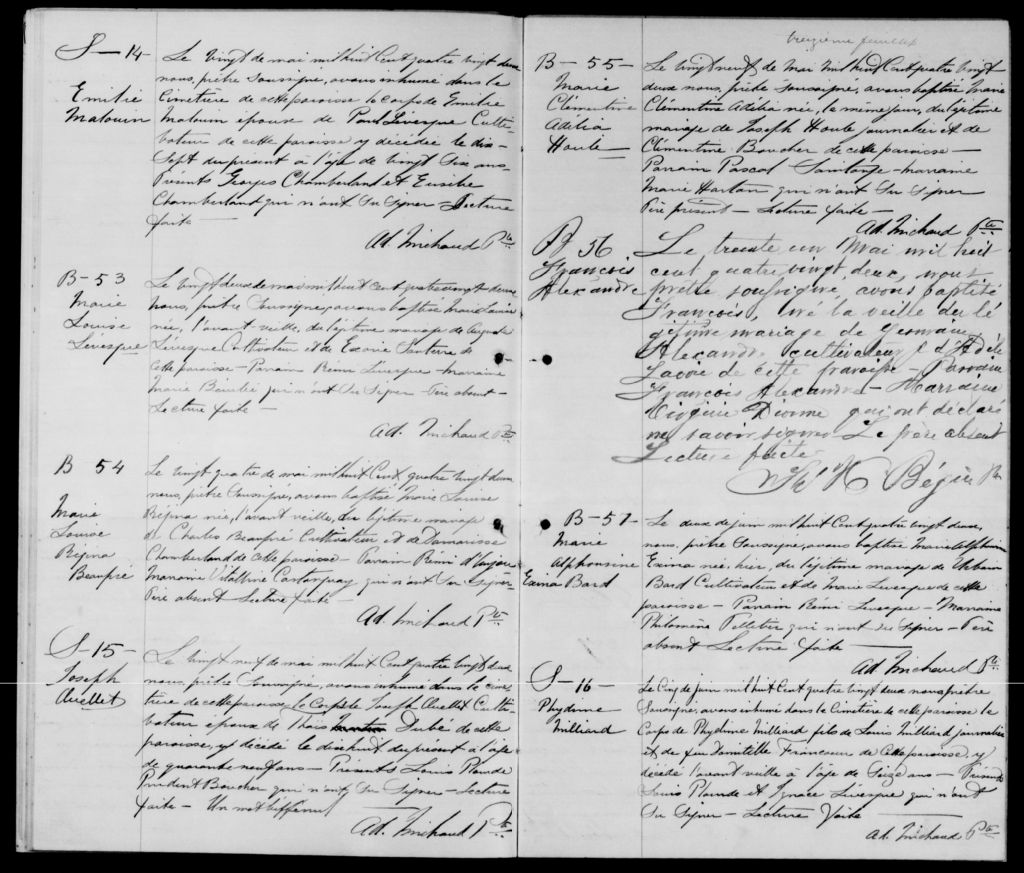 S - 14
Emilie
Malouin
Le vingt de mai mil huit Cent quatre vingt deux
nous, prêtre Soussigné, avons inhumé dans le
Cimetière de cette paroisse le corps de Emilie
Malouin épouse de Paul Lévesque Culti-
vateur de cette paroisse y décédée le dix-
Sept du présent à l'âge de vingt Six ans
Présents Georges Chamberland et Eusèbe
Chamberland qui n'ont Su Signer - Lecture
faite -
Ad. Michaud Ptre
B - 53
Marie
Louise
Lévesque
Le vingt deux de mai mil huit cent quatre vingt deux
nous, prêtre Soussigné, avons baptisé Marie Louise
née, l'avant veille, du légitime mariage de Auguste
Lévesque Cultivateur et de Exorie Santerre de
cette paroisse - Parrain Rémi Lévesque - Marraine
Marie Bérubé qui n'ont Su Signer - Père absent -
Lecture faite -
Ad. Michaud Ptre
B 54
Marie
Louise
Régina
Beaupré
Le vingt quatre de mai mil huit Cent quatre vingt deux
nous, prêtre Soussigné, avons baptisé Marie Louise
Régina née, l'avant veille, du légitime mariage
de Charles Beaupré Cultivateur et de Damarisse
Chamberland de cette paroisse - Parrain Rémi d'Anjou
Marraine Vitaline Castonguay qui n'ont Su Signer -
Père absent Lecture faite -
Ad. Michaud Ptre
S - 15 -
Joseph
Ouellet
Le vingt neuf de mai mil huit Cent quatre vingt deux
nous, prêtre Soussigné, avons inhumé dans le cime-
tière de cette paroisse le Corps de Joseph Ouellet Culti-
vateur époux de Thaïs Dubé de cette
paroisse, y décédé le dix huit du présent à l'âge
de quarante neuf ans - Présents Louis Plourde
Prudent Boucher qui n'ont Su Signer - Lecture
faite - Un mot biffé nul
Ad. Michaud Ptre
treizième feuillet
B - 55 -
Marie
Clémentine
Adélia
Houle
Le vingt neuf de Mai mil huit Cent quatre vingt
deux nous, prêtre Soussigné, avons baptisé Marie
Clémentine Adélia née, le même jour, du légitime
mariage de Joseph Houle journalier et de
Clémentine Boucher de cette paroisse -
Parrain Pascal - marraine
Marie qui n'ont Su Signer
Père présent - Lecture faite -
Ad. Michaud Ptre
B 56
François
Alexandre
Le trente un Mai mil huit
cent quatre vingt deux, nous
prêtre soussigné, avons baptisé
François, né la veille du lé
gitime mariage de Germain
Alexandre cultivateur & d'Adèle
Lavoie de cette paroisse - Parrain
François Alexandre - Marraine
Virginie Dionne qui ont déclaré
ne savoir signer - Le père absent
Lecture faite
Bégin Ptre
B - 57
Marie
Alphonsine
Exina Bard
Le deux de juin mil huit Cent quatre vingt deux,
nous, prêtre Soussigné, avons baptisé Marie Alphonsine
Exina née, hier, du légitime mariage de Urbain
Bard Cultivateur et de Marie Levesque de cette
paroisse - Parrain Rémi Levesque - Marraine
Philomène Pelletier qui n'ont Su Signer - Père
absent Lecture faite -
Ad. Michaud Ptre
S - 16
Phydime
Milliard
Le Cinq de juin mil huit Cent quatre vingt deux nous prêtre
Soussigné, avons inhumé dans le Cimetière de cette paroisse le
Corps de Phydime Milliard fils de Louis Milliard journalier
et de feu Domitille Francoeur de cette paroisse, y
décédé l'avant veille à l'âge de Seize ans - Présents
Louis Plourde et Ignace Lévesque qui n'ont
Su Signer - Lecture faite -
Ad. Michaud Ptre